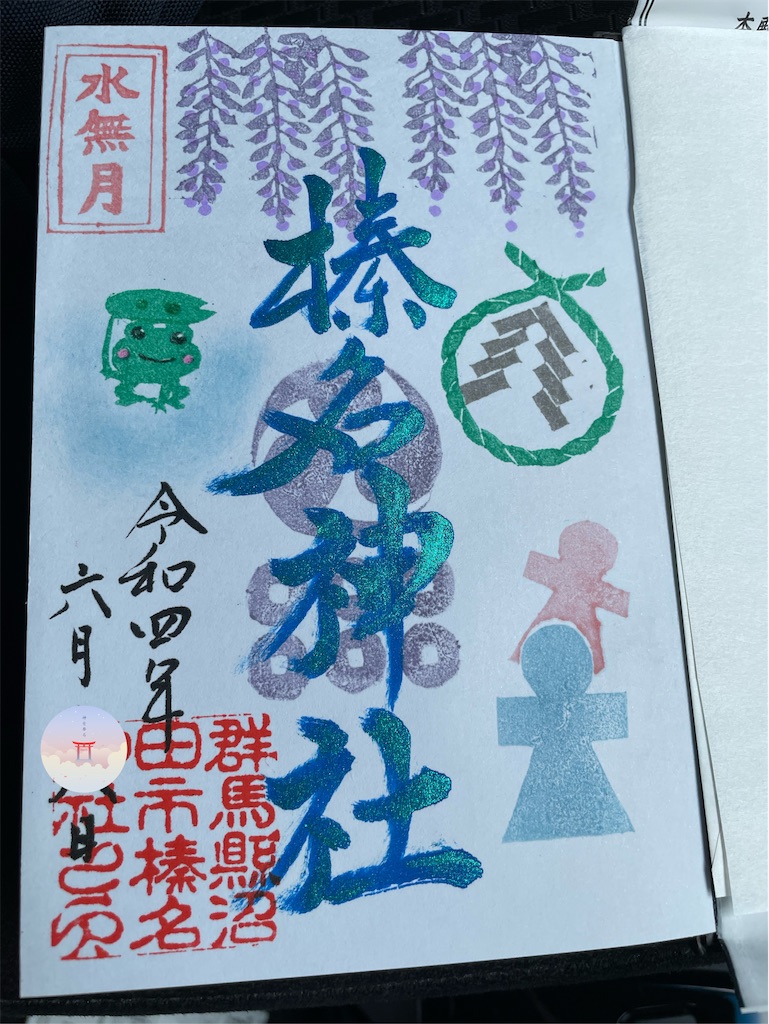 水無月
榛名神社
令和四年
六月
日
群馬縣沼
田市榛名
社之印